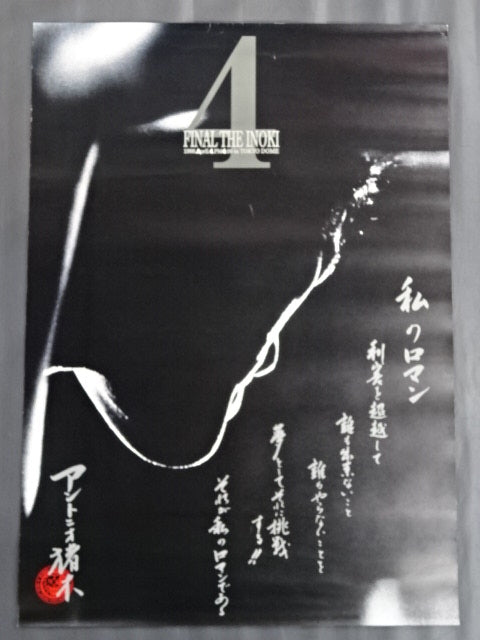 4
FINAL THE INOKI
1998. April 4. PM in TOKYO DOME
私のロマン
利害を超越して
誰も出来ないこと
誰もやらないことを
夢としてそれに挑戦
する!!
それが私のロマンである
アントニオ猪木